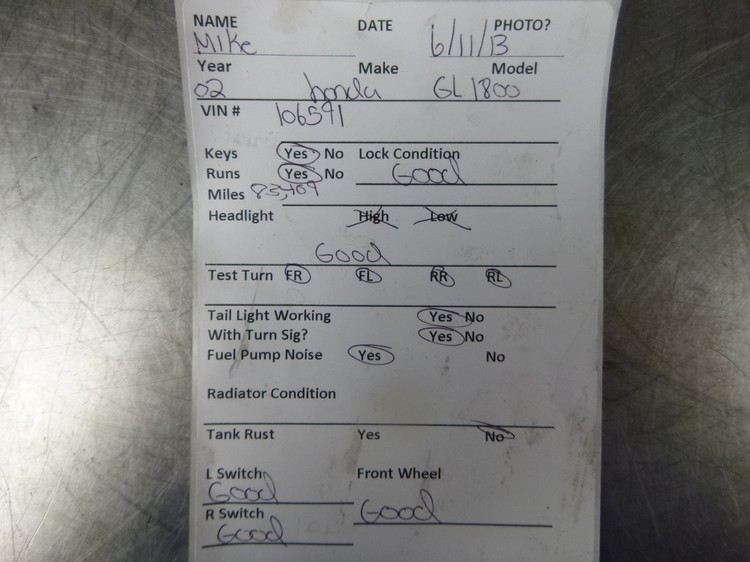 NAME DATE PHOTO?
Mike 6/11/13
Year Make Model
02 honda GL 1800
VIN # 106591
Keys Yes No Lock Condition
Runs Yes No Good
Miles 83,409
Headlight High Low
Good
Test Turn FR FL RR RL
Tail Light Working Yes No
With Turn Sig? Yes No
Fuel Pump Noise Yes No
Radiator Condition
Tank Rust Yes No
L Switch Front Wheel
Good Good
R Switch
Good